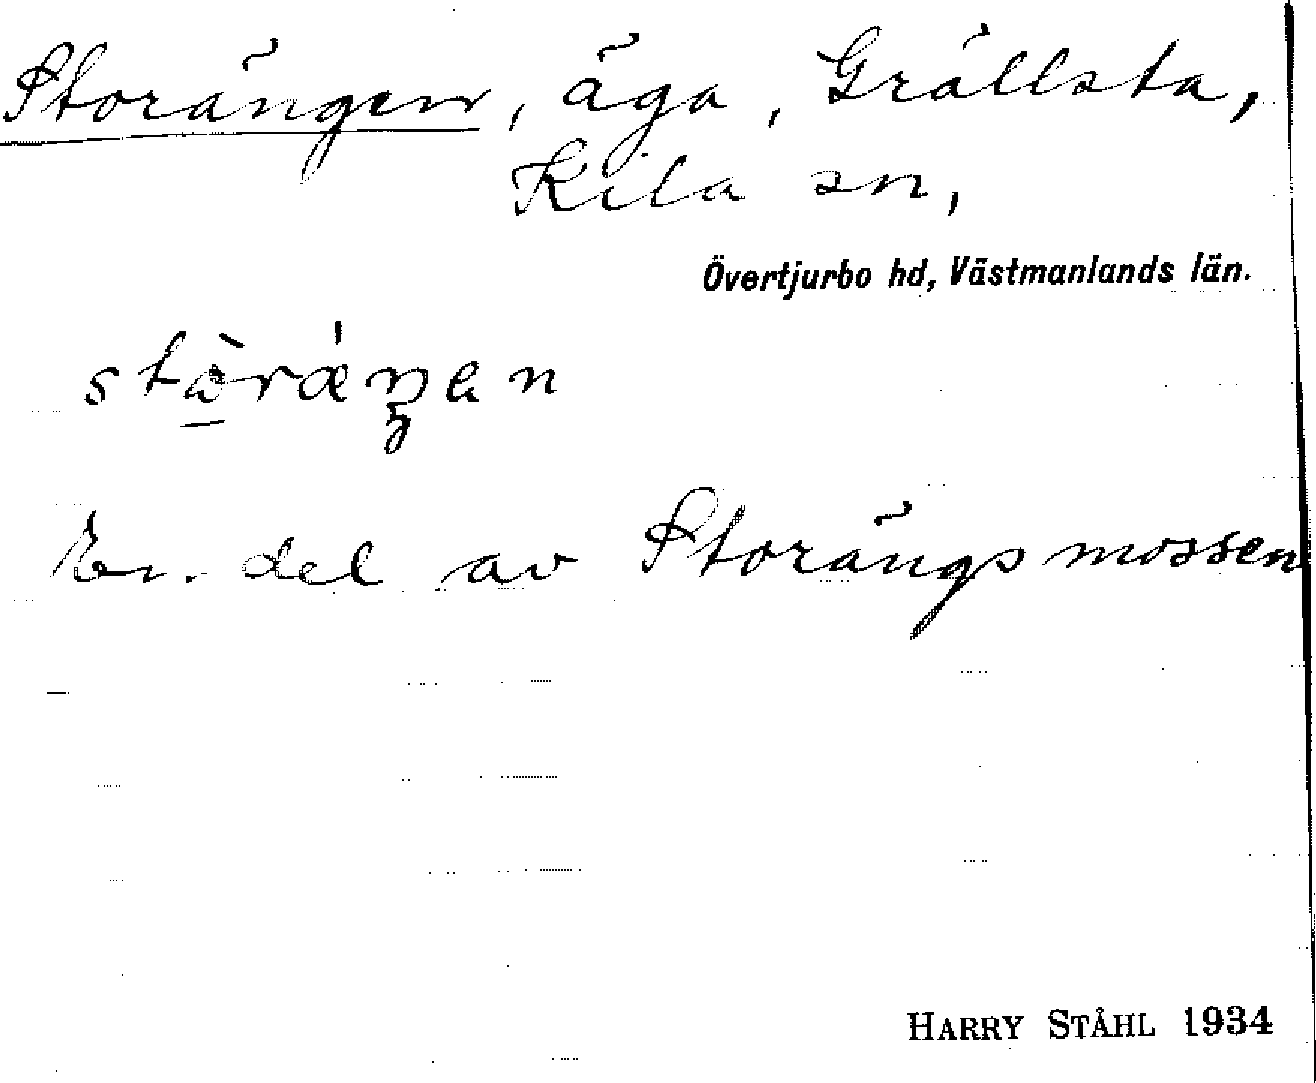 Storängen, äga, Grällsta,
Kila sn,
Övertjurbo hd, Västmanlands län.
En del av Storängsmossen
HARRY STÅHL 1934